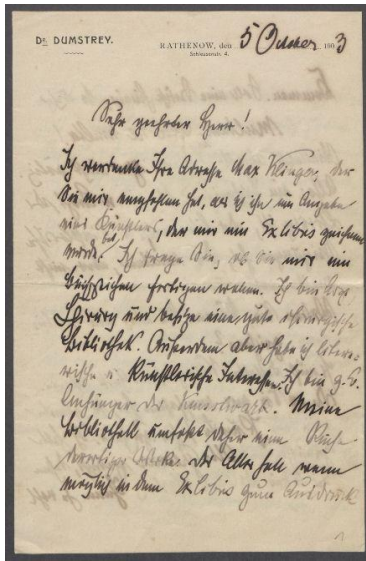 Dr. DUMSTREY.
RATHENOW, den 5 October 1903
Schleusenstr. 4.
Sehr geehrter Herr!
Ich verdanke Ihre Adresse Max Klinger, der
Sie mir empfohlen hat, als ich ihn um Angabe
eines Künstlers, der mir ein Exlibris zeichnen
werde, bat. Ich frage Sie, ob Sie mir ein
Buchzeichen fertigen wollen. Ich bin
Chirurg und besitze eine gute chirurgische
Bibliothek. Ausserdem aber habe ich litera-
rische u. künstlerische Interessen. Ich bin z. B.
Anhänger der Meine
Bibliothek umfasst daher eine Reihe
derartiger Werke. Das Alles soll wenn
möglich in dem Exlibris zum Ausdruck